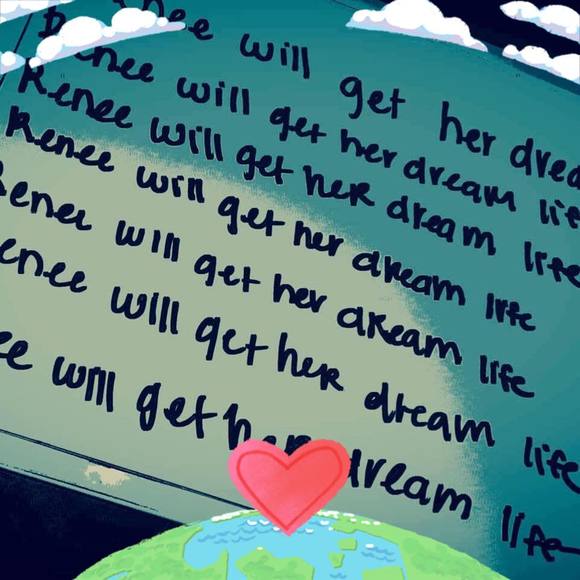 nee will get her drea
Renee will get her dream lif
Renee will get her dream life
Renee will get her dream life
Renee will get her dream life
enee will get her dream life
ee will get her dream life